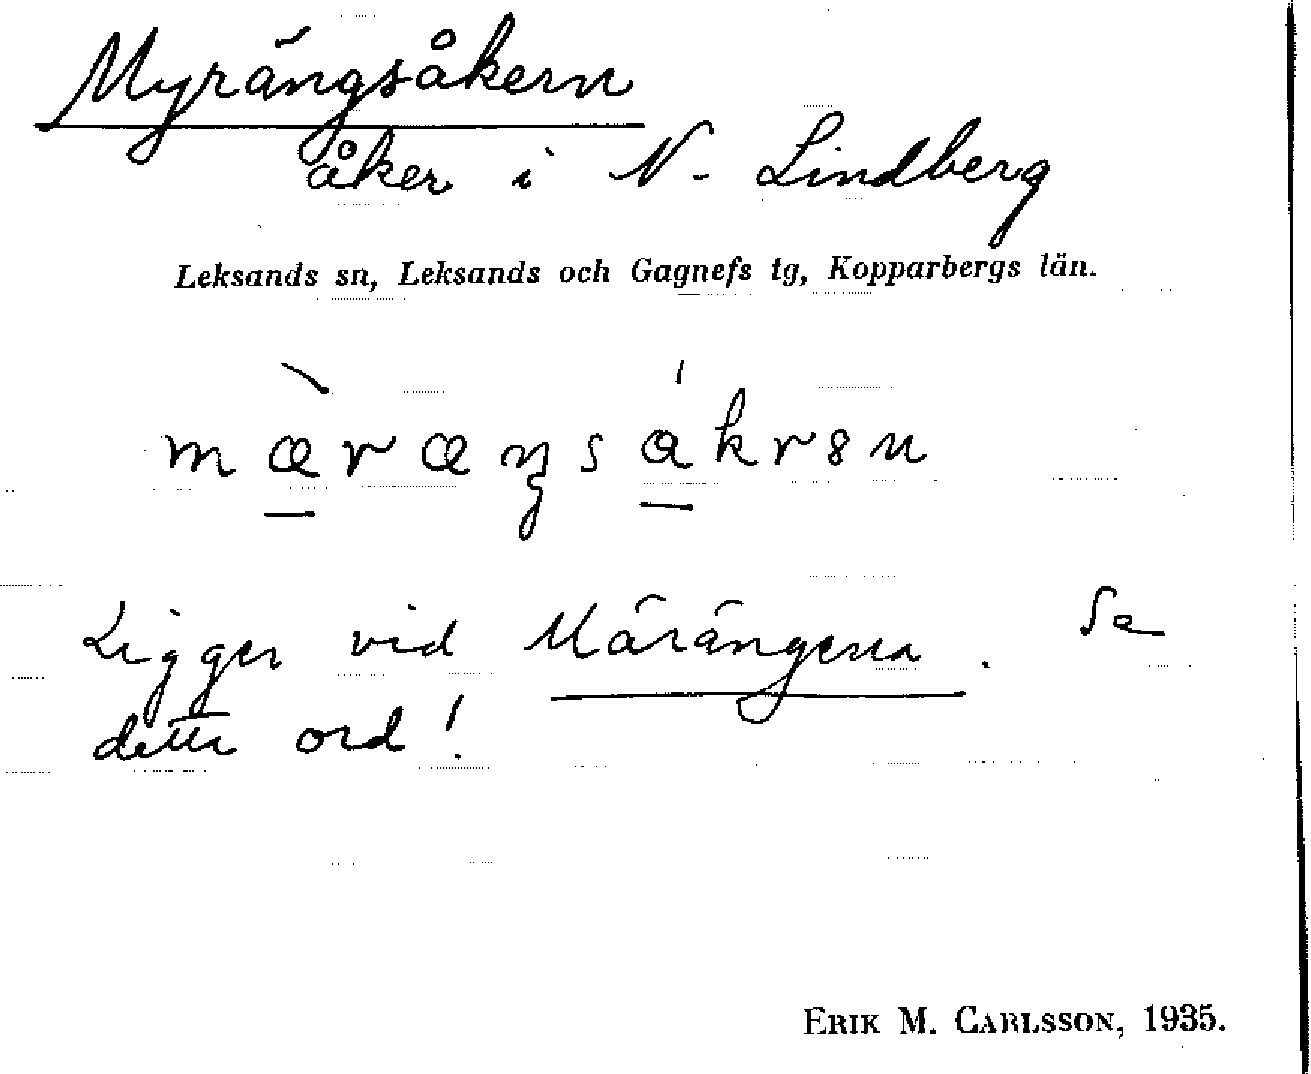 Myrängsåkern
åker i N. Lindberg
Leksands sn, Leksands och Gagnefs tg, Kopparbergs län.
mæ̀ræŋsákrən
Ligger vid Märängerna. Se
detta ord!
ERIK M. CARLSSON, 1935.